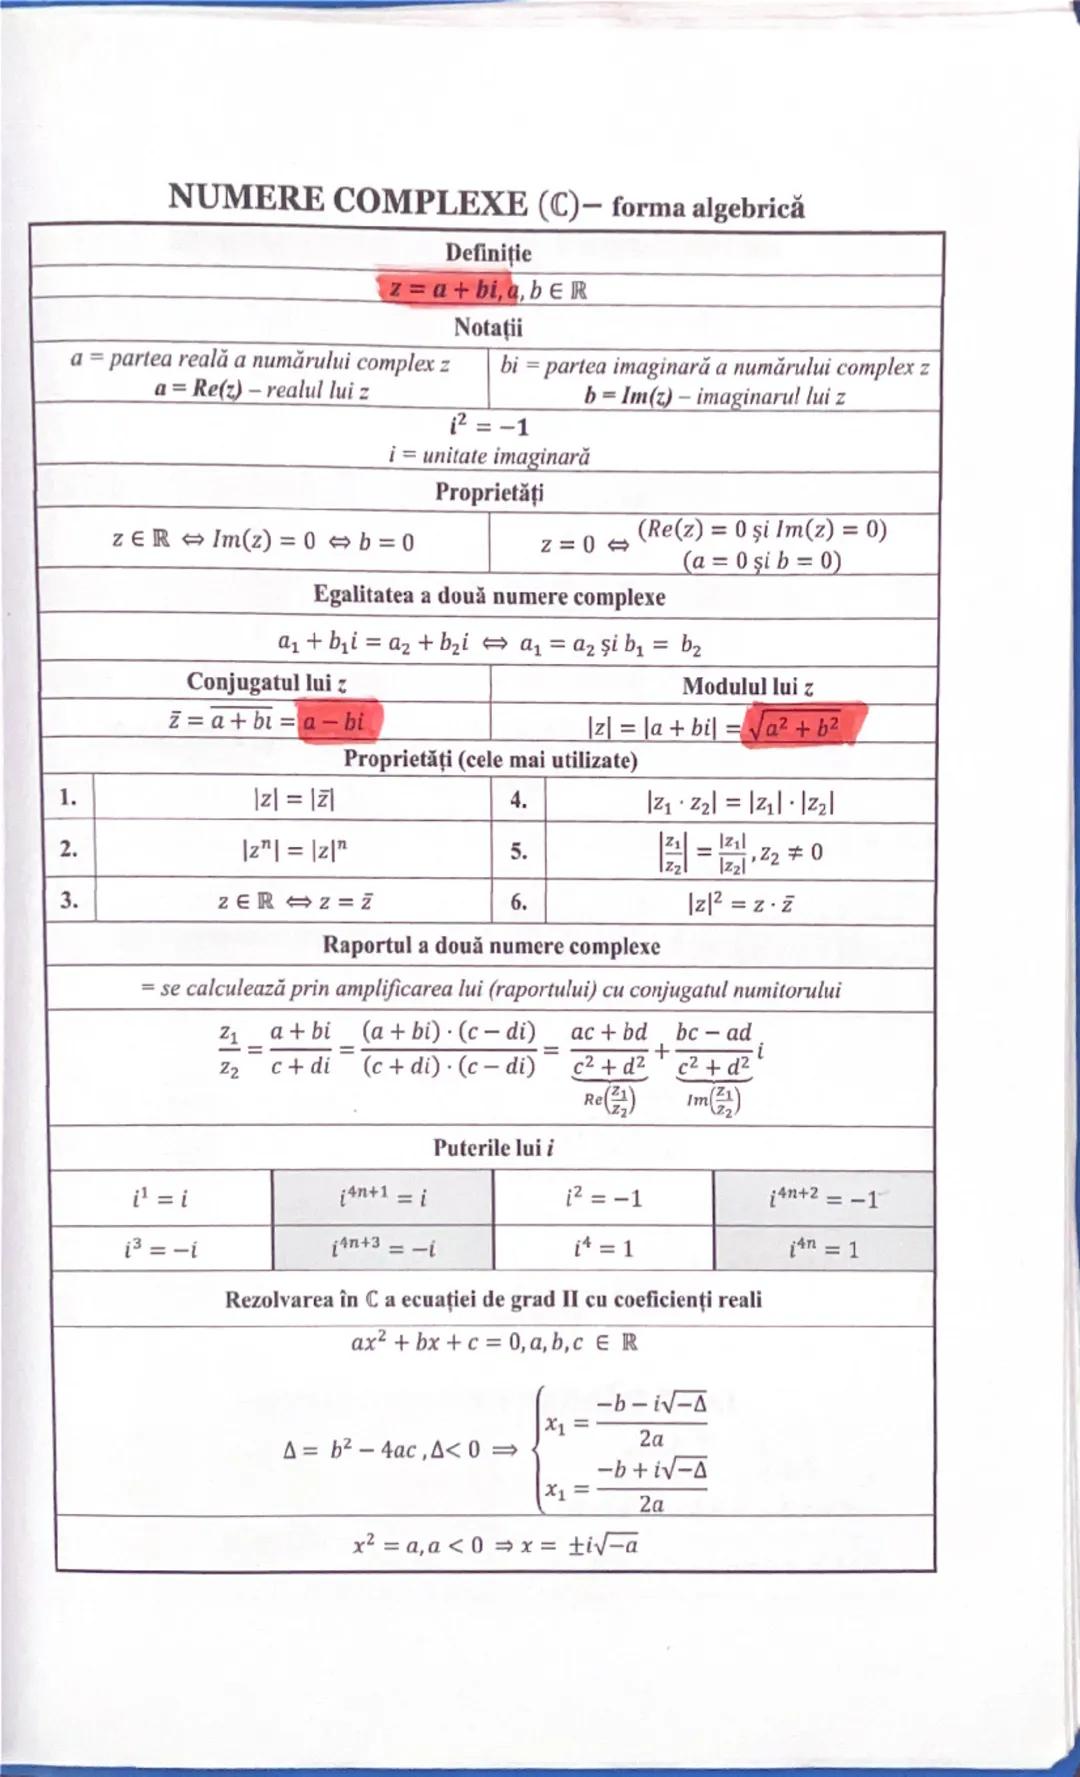 NUMERE COMPLEXE (ℂ)– forma algebrică
Definiție
z = a + bi, a, b ∈ ℝ
Notații
a = partea reală a numărului complex z
a = Re(z) – realul lui z
bi = partea imaginară a numărului complex z
b = Im(z) – imaginarul lui z
i² = −1
i = unitate imaginară
Proprietăți
z ∈ ℝ ⇔ Im(z) = 0 ⇔ b = 0
z = 0 ⇔ (Re(z) = 0 și Im(z) = 0)
(a = 0 și b = 0)
Egalitatea a două numere complexe
a₁ + b₁i = a₂ + b₂i ⇔ a₁ = a₂ și b₁ = b₂
Conjugatul lui z
Modulul lui z
z̅ = a̅ ̅+̅ ̅b̅i̅ = a − bi
|z| = |a + bi| = √(a² + b²)
Proprietăți (cele mai utilizate)
1. |z| = |z̅| 4. |z₁ · z₂| = |z₁| · |z₂|
2. |zⁿ| = |z|ⁿ 5. |z₁/z₂| = |z₁|/|z₂|, z₂ ≠ 0
3. z ∈ ℝ ⇔ z = z̅ 6. |z|² = z · z̅
Raportul a două numere complexe
= se calculează prin amplificarea lui (raportului) cu conjugatul numitorului
z₁/z₂ = (a + bi)/(c + di) = (a + bi) · (c − di)/(c + di) · (c − di) = (ac + bd)/(c² + d²) + (bc − ad)/(c² + d²) i
Re(z₁/z₂) Im(z₁/z₂)
Puterile lui i
i¹ = i i⁴ⁿ⁺¹ = i i² = −1 i⁴ⁿ⁺² = −1
i³ = −i i⁴ⁿ⁺³ = −i i⁴ = 1 i⁴ⁿ = 1
Rezolvarea în ℂ a ecuației de grad II cu coeficienți reali
ax² + bx + c = 0, a, b, c ∈ ℝ
Δ = b² − 4ac , Δ< 0 ⇒ { x₁ = (−b − i√−Δ)/2a
x₁ = (−b + i√−Δ)/2a
x² = a, a < 0 ⇒ x = ±i√−a